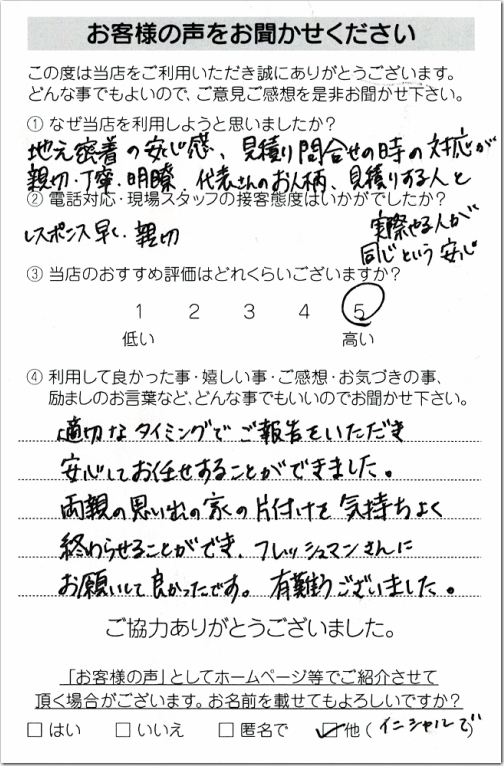 お客様の声をお聞かせください
この度は当店をご利用いただき誠にありがとうございます。
どんな事でもよいので、ご意見ご感想を是非お聞かせ下さい。
① なぜ当店を利用しようと思いましたか？
地元密着の安心感、見積り問合せの時の対応が
親切・丁寧・明瞭、代表さんのお人柄、見積りする人と
実際やる人が
同じという安心
② 電話対応・現場スタッフの接客態度はいかがでしたか？
レスポンス早く、親切
③ 当店のおすすめ評価はどれくらいございますか？
1 2 3 4 5
低い 高い
④ 利用して良かった事・嬉しい事・ご感想・お気づきの事、
励ましのお言葉など、どんな事でもいいのでお聞かせ下さい。
適切なタイミングでご報告をいただき
安心してお任せすることができました。
両親の思い出の家の片付けを気持ちよく
終わらせることができ、フレッシュマンさんに
お願いして良かったです。有難うございました。
ご協力ありがとうございました。
「お客様の声」としてホームページ等でご紹介させて
頂く場合がございます。お名前を載せてもよろしいですか？
□ はい □ いいえ □ 匿名で ☑ 他（イニシャルで）